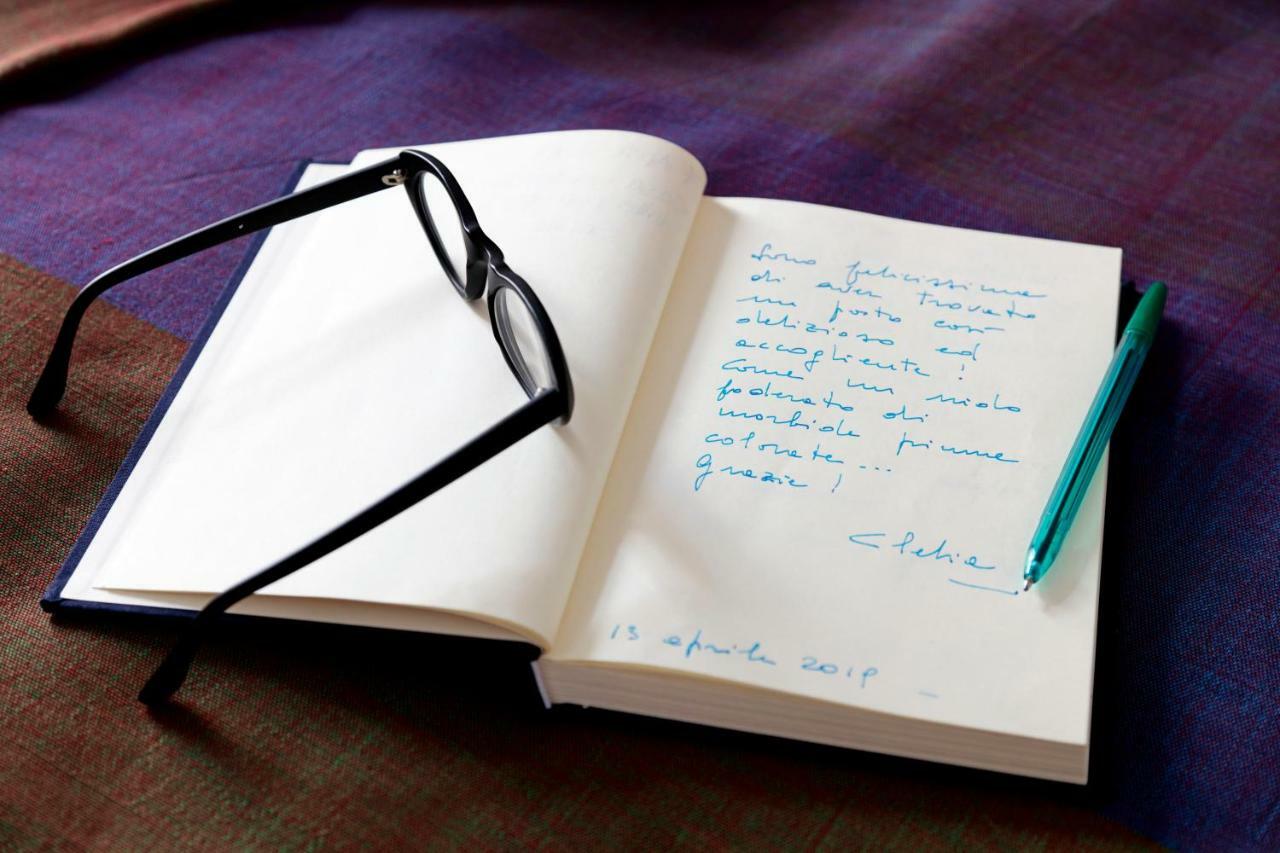 Sono felicissima
di aver trovato
un posto così
delizioso ed
accogliente !
Come un nido
foderato di
morbide piume
colorate...
Grazie !
Clelia
13 aprile 2019